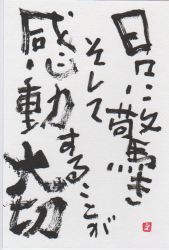 日々に驚き
そして
感動
することが
大切